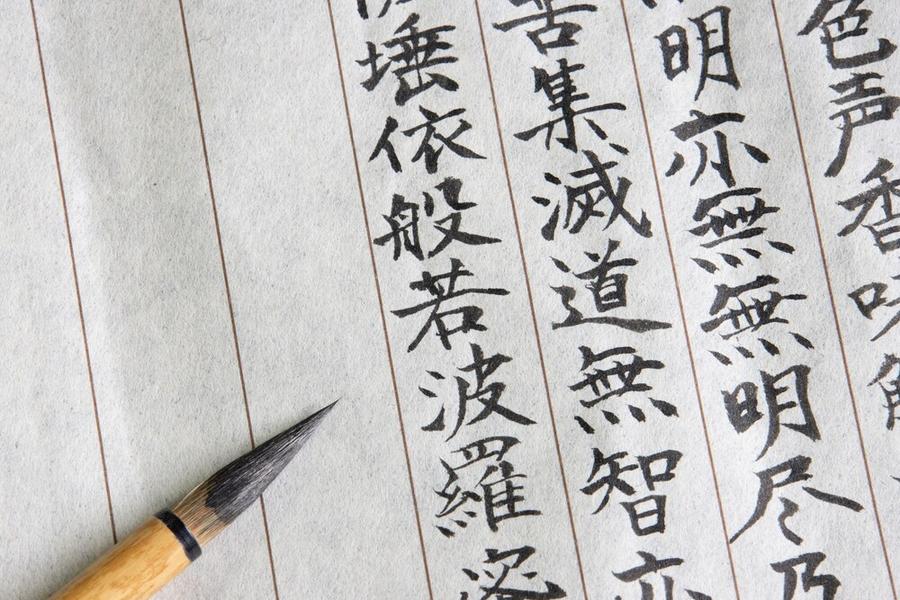 色声香味触
明亦無無明尽乃
苦集滅道無智亦
埵依般若波羅蜜